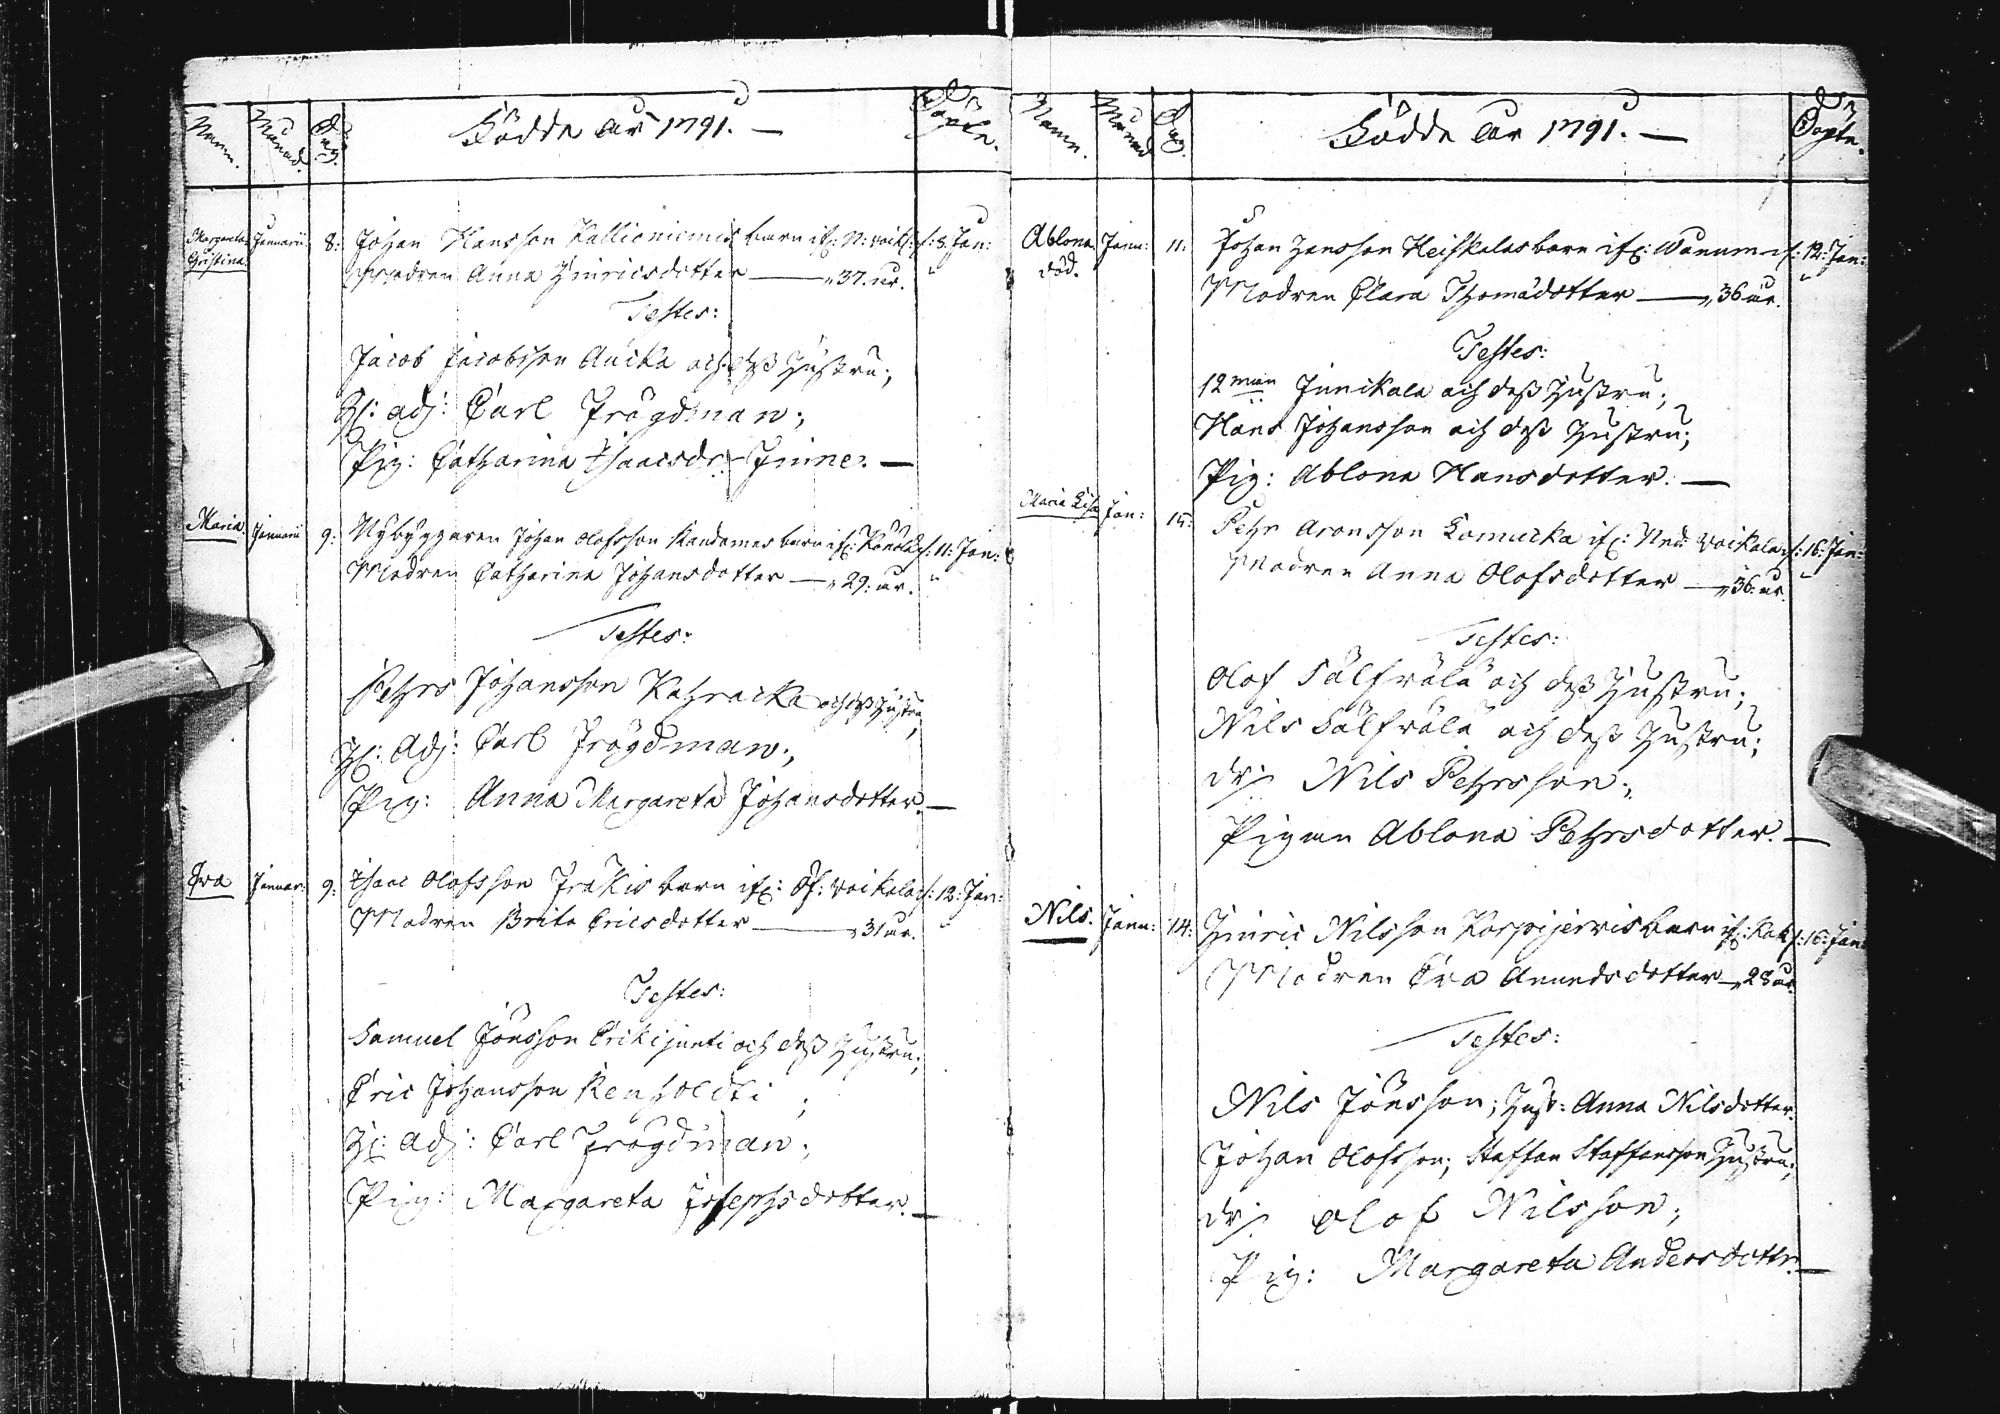 Namn. Månad. Dag. Födde år 1791. — Döpte.
Margareta Januarii 8: Johan Hansson Kallioniemis barn if: N: voik: f: 8. Jan:
Christina Modren Anna Hinricsdotter — „ 37. år.
Testes:
Jacob Jacobsson Aucka och dess Hustru;
H: adj: Carl Frögdman;
Pig: Catharina Isaacsdr. Junne. —
Maria. Januarii 9: Nybyggaren Johan Olofsson Kandomes barn if: f: 11: Jan:
Modren Catharina Johansdotter — „ 29: år.
Testes:
Pehrs Johansson Kahracka och dess Hustru;
H: Adj: Carl Frögdman;
Pig: Anna Margareta Johansdotter. —
Eva Januar: 9: Isaac Olofsson Frakis barn if: Öf: voikala f: 12: Jan:
Modren Brita Ericsdotter — „ 31 år.
Testes:
Samuel Jönsson Erikijunti och dess Hustru;
Eric Johansson Renholdti;
H: adj: Carl Frögdman;
Pig: Margareta Josephsdotter. —
Namn. Månad Dag. Födde år 1791. — Döpte.
Ablona Janu: 11: Johan Hansson Heiskalas barn if: f: 12: Jan:
död. Modren Clara Thomädotter — „ 36 år.
Testes:
12 män Junickala och dess Hustru;
Hans Johansson och dess Hustru;
Pig: Ablona Hansdotter. —
Maria Lisa Jan: 15: Pehr Aronsson Lomucka if: Ned: Voikala f: 16: Jan:
Modren Anna Olofsdotter — „ 36: år.
Testes:
Olof och dess Hustru;
Nils och dess Hustru;
dr: Nils Pehrsson;
Pigan Ablona Pehrsdotter. —
Nils. Janu: 14: Hinric Nilsson Korpijerwis barn if: f: 16: Jan:
Modren Eva Anundsdotter — „ 28 år.
Testes:
Nils Jönsson; Hust: Anna Nilsdotter.
Johan Olofsson; Staffan Staffansson Hustru;
dr: Olof Nilsson;
Pig: Margareta Andersdottr. —